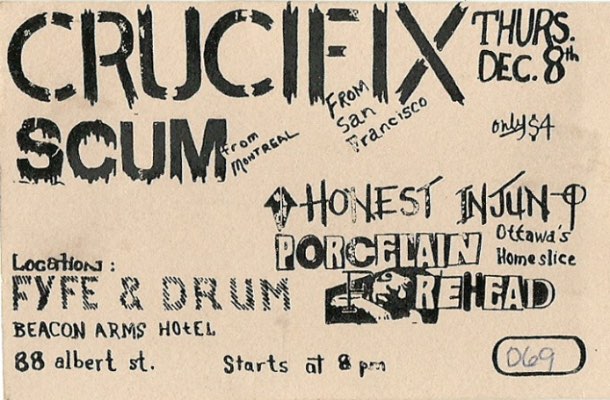 CRUCIFIX
THURS.
DEC. 8th
FROM
San
Francisco
only $4
SCUM
from
MONTREAL
HONEST INJUN
Ottawa's
Homeslice
PORCELAIN
FOREHEAD
Location:
FYFE & DRUM
BEACON ARMS HOtEL
88 albert st.
Starts at 8 pm
069